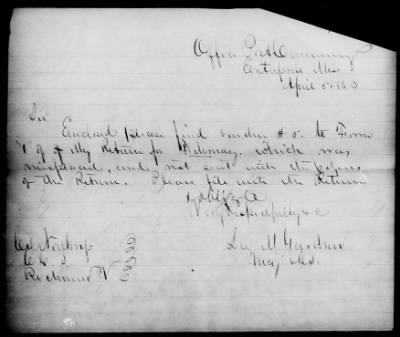 Office Post Commissary
Miss
April 5 1863
Sir
Enclosed please find voucher # 5. to Form
of my Return for February. which was
misplaced, and not sent with the Papers
of the Return. Please file with the Return
& Oblige
Very Respectfully &c
Col Northrop
C. G. S.
Richmond Va
Gardner
Maj